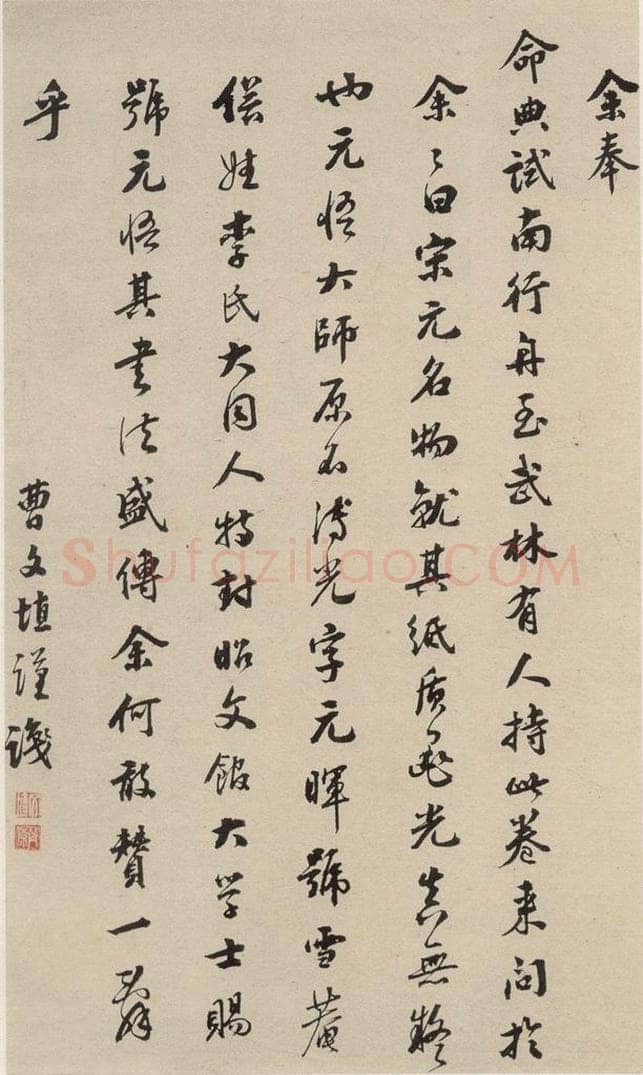 余奉
命典試南行舟至武林有人持此卷来问於
余〻曰宋元名物就其纸质墨光真無疑
也元悟大師原名溥光字元暉號雪菴
俗姓李氏大同人特封昭文馆大学士賜
號元悟其書法盛傳余何敢贊一辭
乎
曹文埴謹識
Shufaziliao.COM